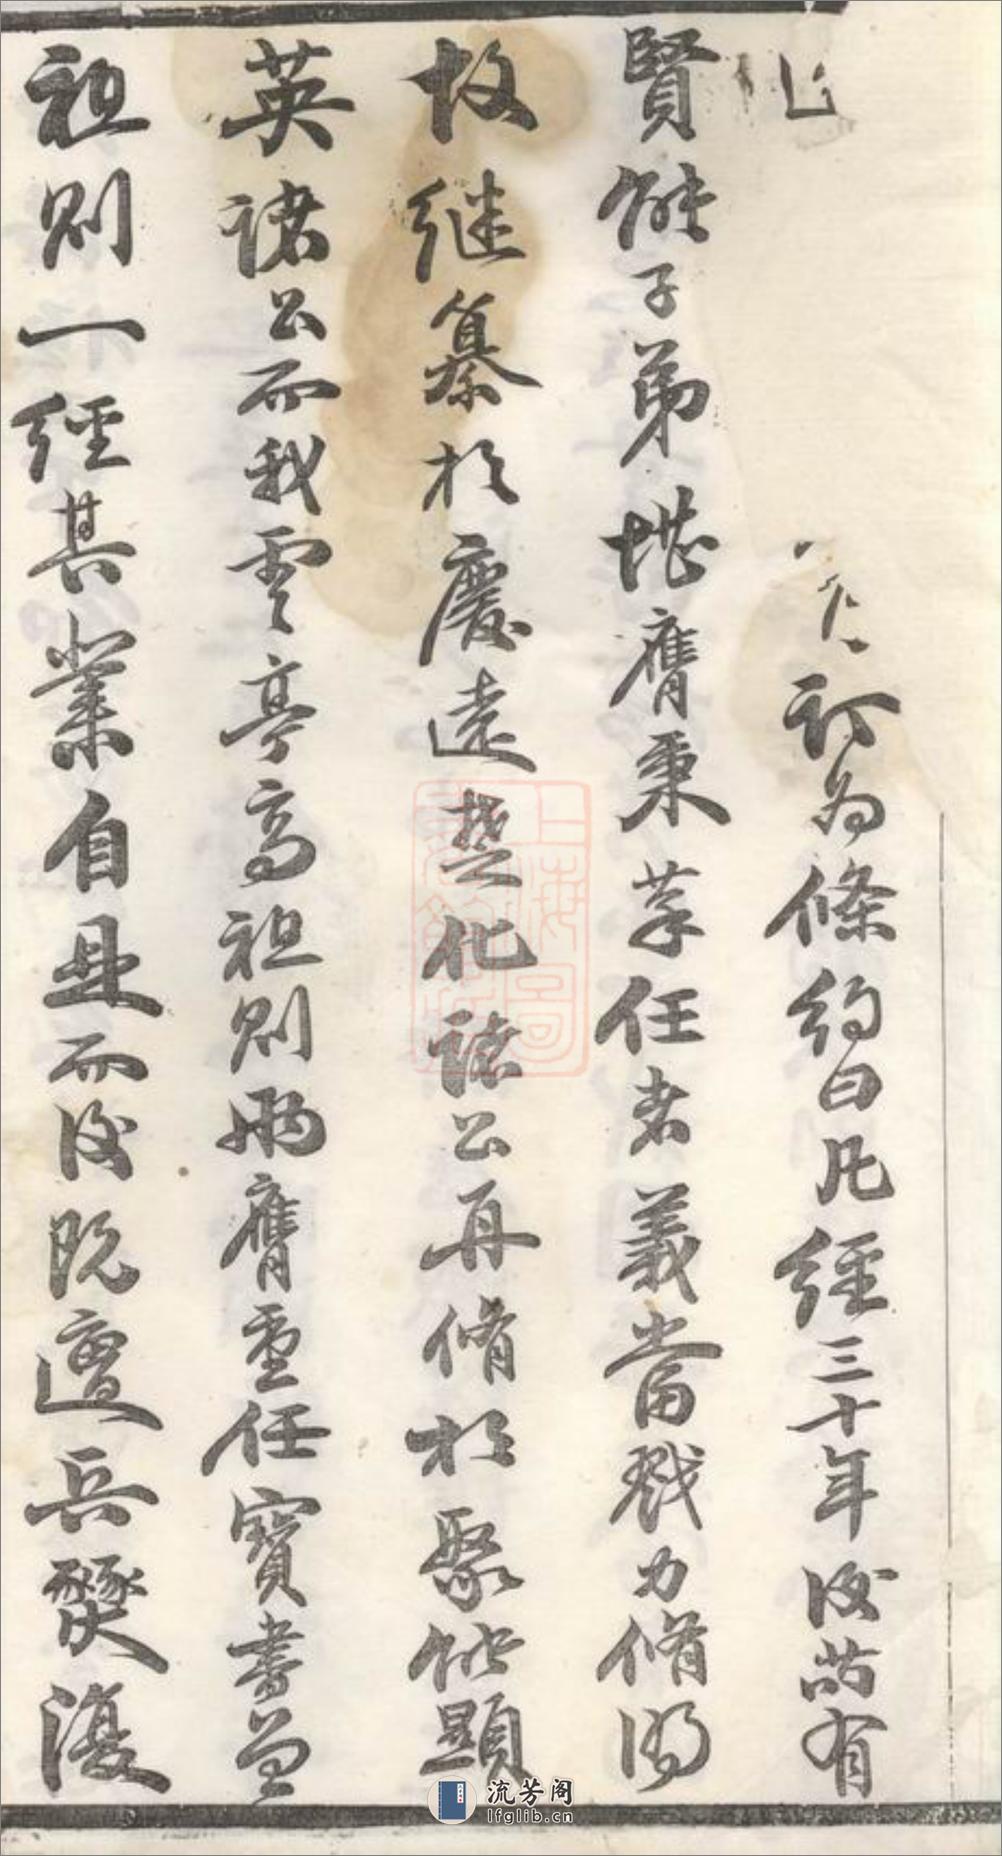 訂為條約曰凡經三十年後苟有
賢能子弟堪膺秉筆任者義當戮力脩明
故継纂於慶遠楚化諸公再脩於聚能顯
英諸公而我雲亭高祖則兩膺重任寶書曾
祖則一經其業自是而後既遭兵燹復
流芳阁
lfglib.cn